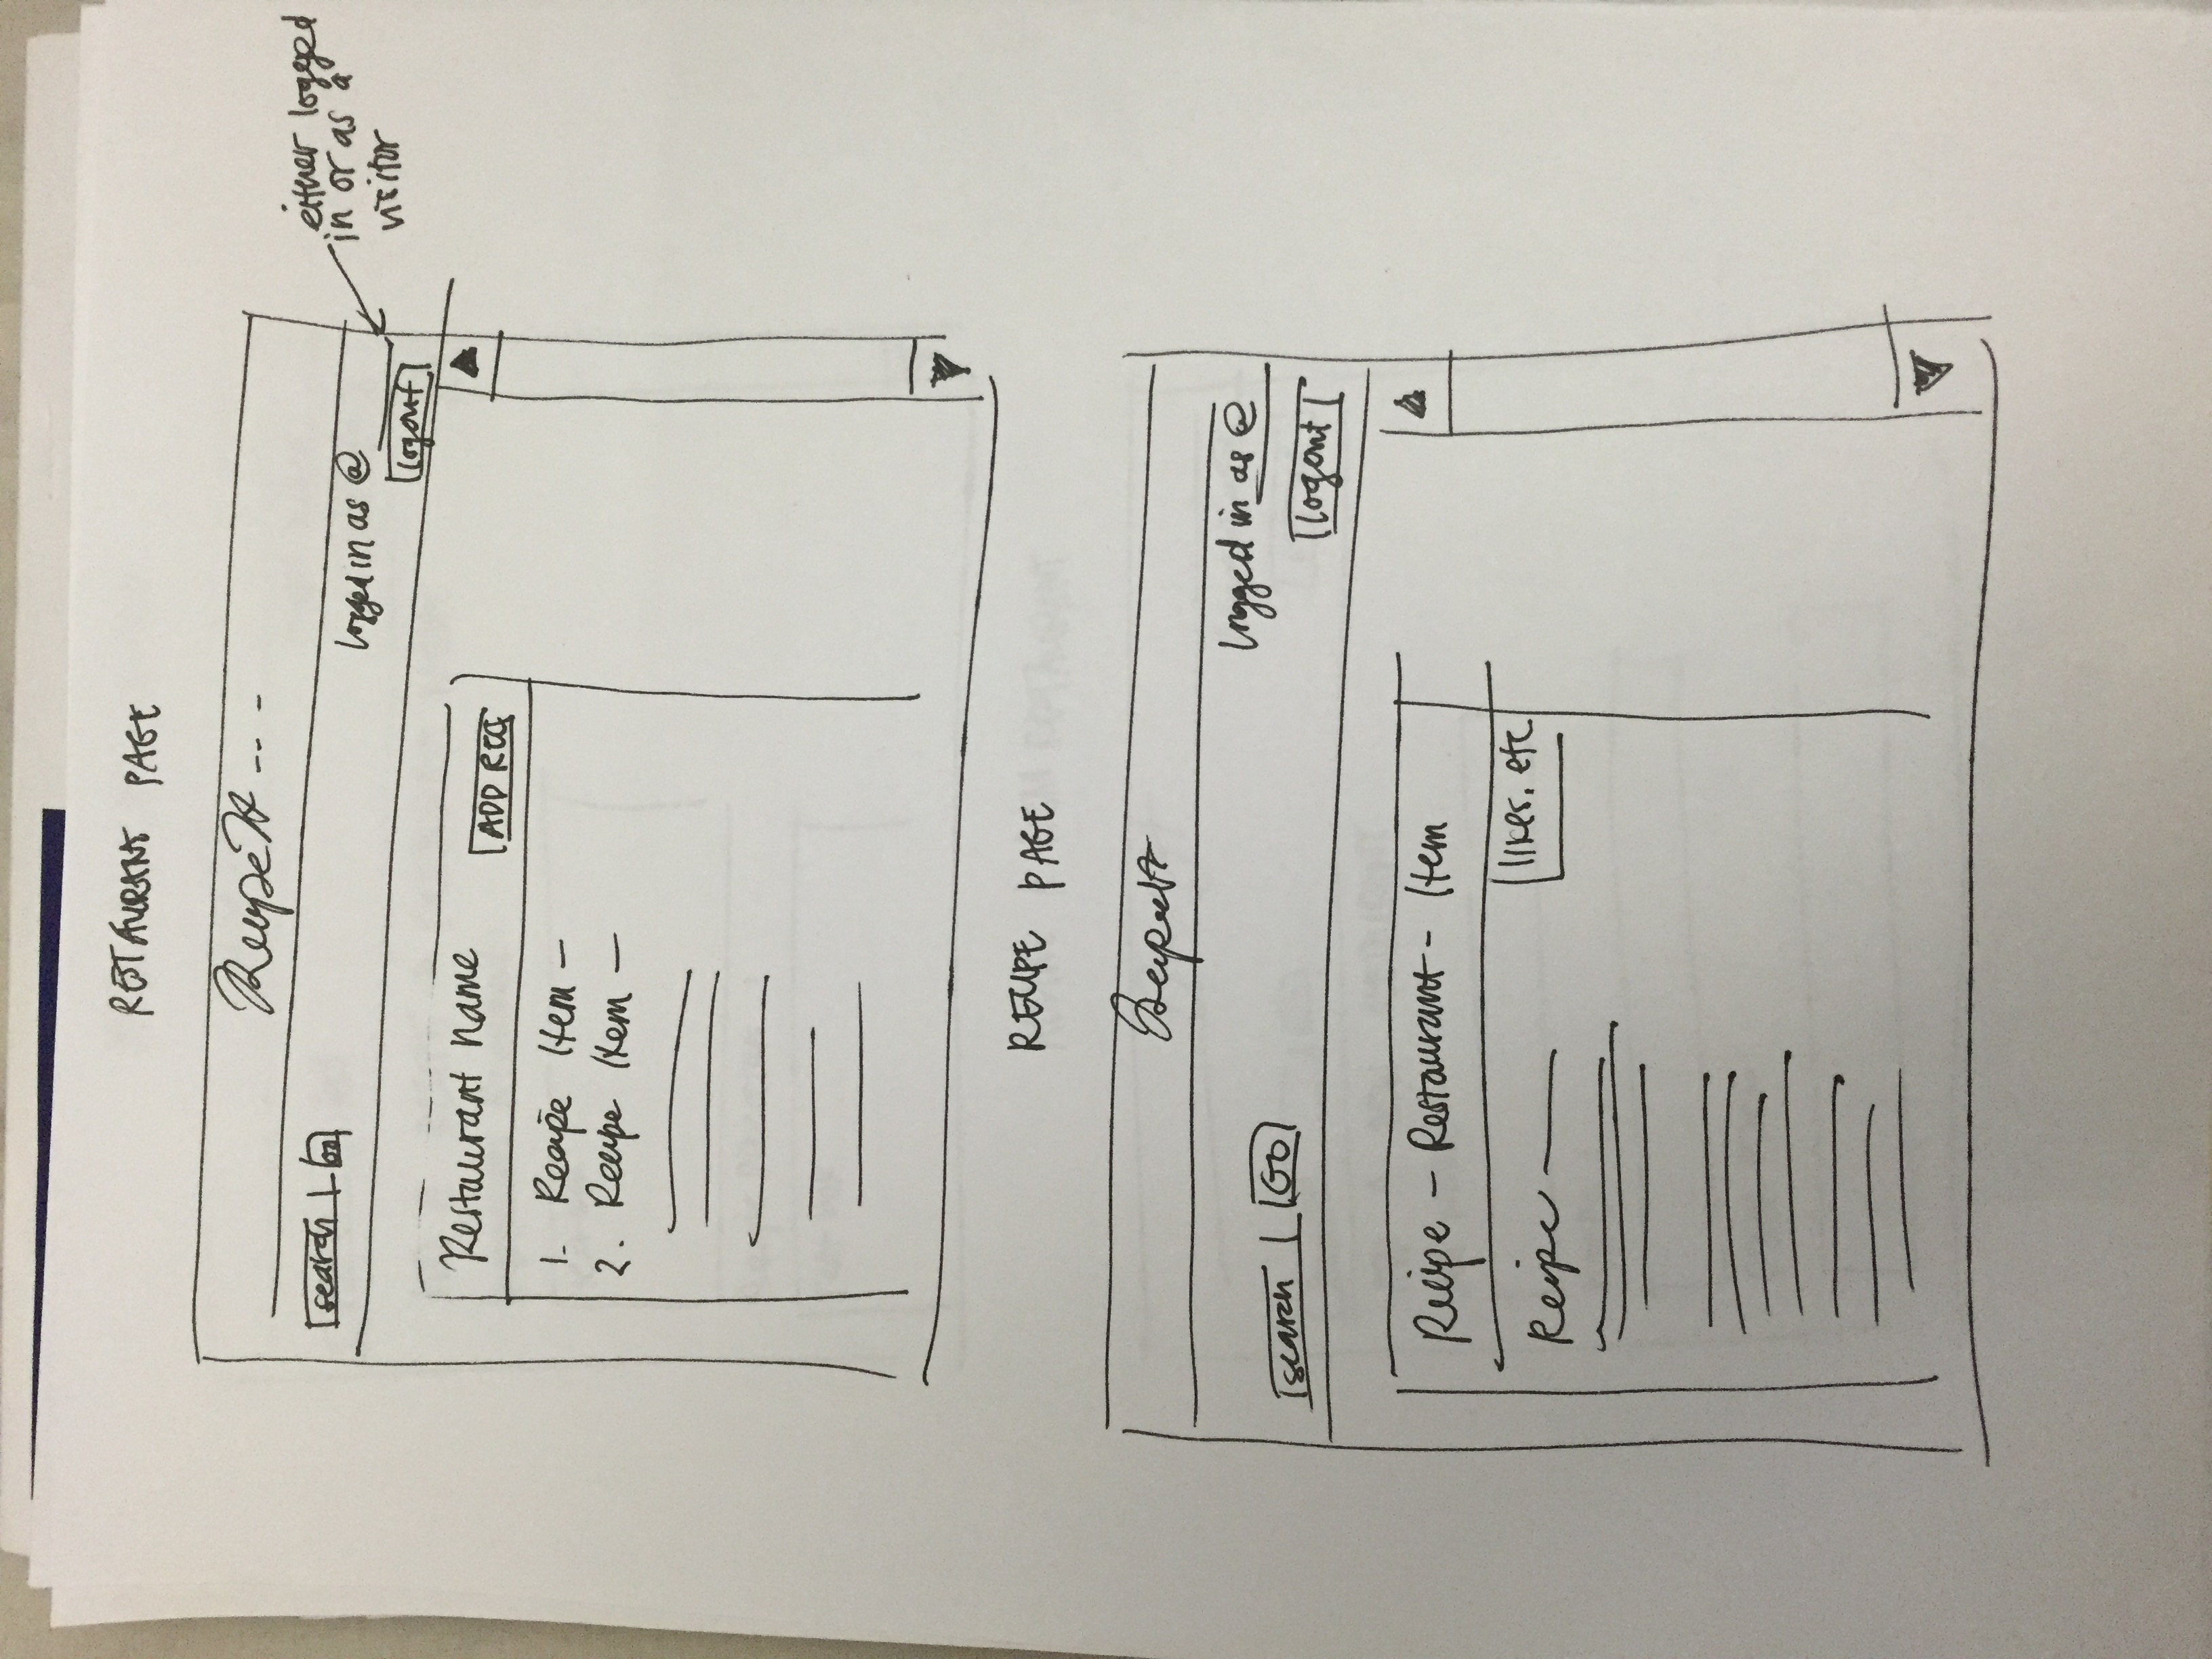 RESTAURANT PAGE
RecipeIt -- -
search GO
logged in as @
either logged
in or as a
visitor
logout
Restaurant name
ADD REC
1. Recipe Item —
2. Recipe Item —
RECIPE PAGE
RecipeIt
logged in as @
search GO
logout
Recipe - Restaurant - Item
likes. etc
Recipe